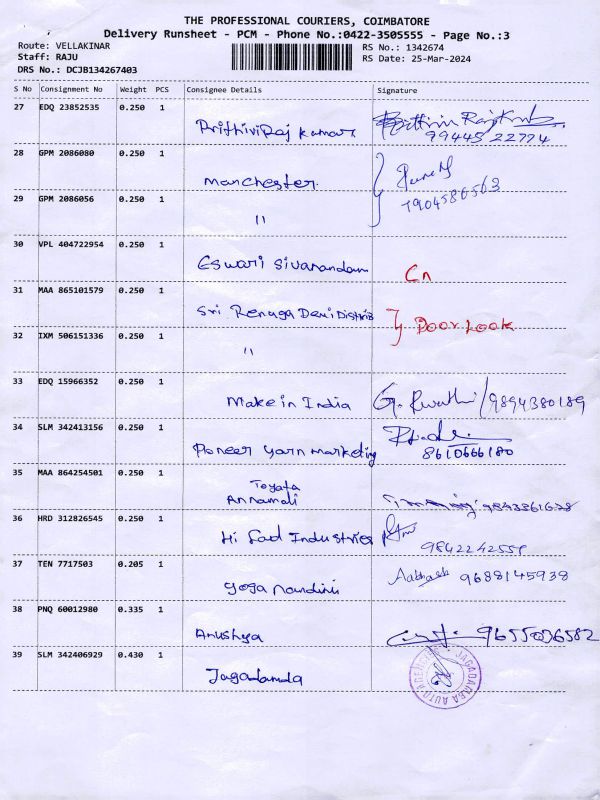 THE PROFESSIONAL COURIERS, COIMBATORE
Delivery Runsheet - PCM - Phone No.:0422-3505555 - Page No.:3
Route: VELLAKINAR
RS No.: 1342674
Staff: RAJU
RS Date: 25-Mar-2024
DRS No.: DCJB134267403
S No Consignment No Weight PCS Consignee Details Signature
27 EDQ 23852535 0.250 1
PrithiviRaj kumar
99445 22774
28 GPM 2086080 0.250 1
Manchester
7904586563
29 GPM 2086056 0.250 1
"
30 VPL 404722954 0.250 1
Eswari Sivanandam
Cn
31 MAA 865101579 0.250 1
Sri Renuga Devi Distrib
Door Look
32 IXM 506151336 0.250 1
"
33 EDQ 15966352 0.250 1
Make in India
9894380189
34 SLM 342413156 0.250 1
Pioneer yarn marketing
8610666180
35 MAA 864254501 0.250 1
Toyata
Annamali
36 HRD 312826545 0.250 1
Hi Sad Industries
37 TEN 7717503 0.205 1
yoga nandini
9688145938
38 PNQ 60012980 0.335 1
Anushya
9655036582
39 SLM 342406929 0.430 1
Jagadamda
JAGADAMBA AUTO AGENCIES